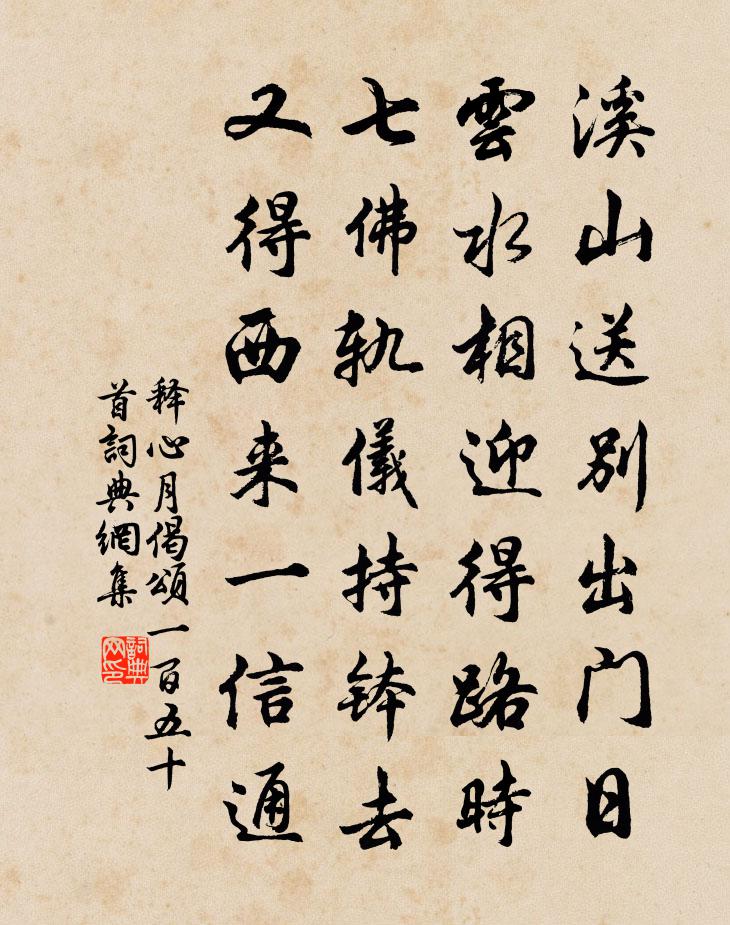 溪山送别出门日
雲水相迎得路時
七佛軌儀持鉢去
又得西来一信通
释心月偈頌一百五十
首詞典網集
詞典网印